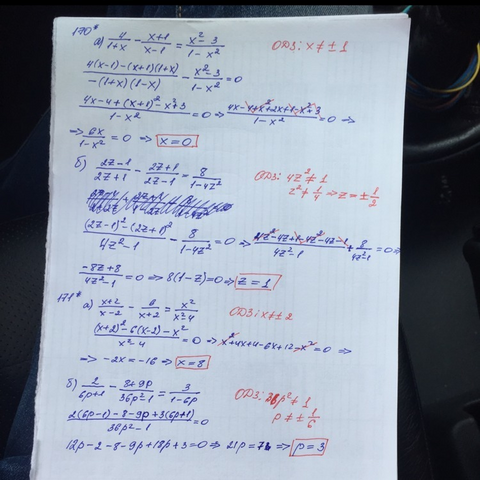 170*
а) 4/(1+x) − (x+1)/(x−1) = (x²−3)/(1−x²)   ОДЗ: x ≠ ± 1
(4(x−1)−(x+1)(1+x))/(−(1+x)(1−x)) − (x²−3)/(1−x²) = 0
(4x−4+(x+1)²−x²+3)/(1−x²) = 0 ⇒ (4x−4+x²+2x+1−x²+3)/(1−x²) = 0 ⇒
⇒ 6x/(1−x²) = 0 ⇒ x=0
б) (2z−1)/(2z+1) − (2z+1)/(2z−1) = 8/(1−4z²)   ОДЗ: 4z² ≠ 1
z² ≠ 1/4 ⇒ z = ± 1/2
((2z−1)²−(2z+1)²)/(4z²−1) − 8/(1−4z²) = 0 ⇒ (4z²−4z+1−4z²−4z−1)/(4z²−1) + 8/(4z²−1) = 0 ⇒
(−8z+8)/(4z²−1) = 0 ⇒ 8(1−z) = 0 ⇒ z = 1
171* а) (x+2)/(x−2) − 6/(x+2) = x²/(x²−4)   ОДЗ: x ≠ ± 2
((x+2)²−6(x−2)−x²)/(x²−4) = 0 ⇒ x²+4x+4−6x+12−x² = 0 ⇒
⇒ −2x = −16 ⇒ x = 8
б) 2/(6p+1) − (8+9p)/(36p²−1) = 3/(1−6p)   ОДЗ: 36p² ≠ 1
p ≠ ± 1/6
(2(6p−1)−8−9p+3(6p+1))/(36p²−1) = 0
12p−2−8−9p+18p+3=0 ⇒ 21p = 7 ⇒ p = 3